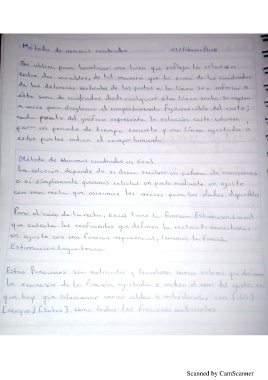 Método de mínimos cuadrados
Se utiliza para localizar una línea que refleja la relación
entre dos variables, de tal manera que la suma de los cuadrados
de las distancias verticales de los puntos a la línea sea inferior a
esta suma de cuadrados desde cualquier otra línea recta. Se emplea
a veces para desglosar el comportamiento fijo variable del costo;
cada punto del gráfico representa la relación costo volumen,
para un periodo de tiempo concreto y una línea ajustada a
estos puntos indica el comportamiento.
Método de mínimos cuadrados en Excel
La solución depende de si desea resolver un sistema de ecuaciones
o si simplemente queremos calcular un punto mediante un ajuste
con una recta que minimice los errores para los datos disponibles
Para el caso de la recta, Excel tiene la función Estimación.Lineal
que calcula los coeficientes que definen la recta. Si necesitamos
un ajuste con una función exponencial, tenemos la función
Estimación.Logarítmica.
Estas funciones son matriciales y devuelven varios valores que definen
la ecuación de la función ajustada
que hay que seleccionar varias celdas e introducirlas con [Ctrl]
[Mayus] [Intro], como todas las funciones matriciales
Scanned by CamScanner